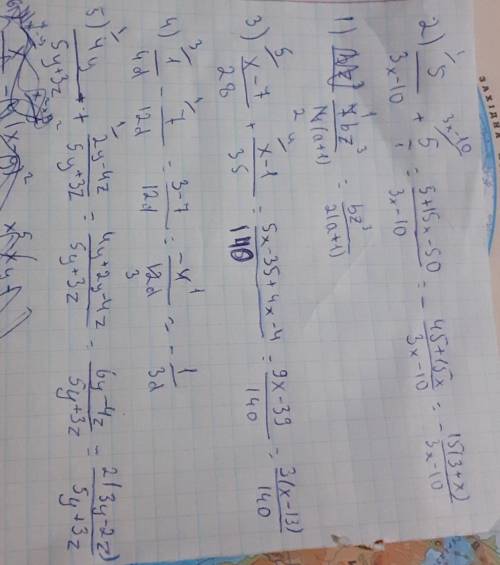 ЗАХІДНА
2) 5/(3x-10) + 5/1 = (5+15x-50)/(3x-10) = - (45+15x)/(3x-10) = - 15(3+x)/(3x-10)
1) 7bz³/(14(a+1)) = bz³/(2(a+1))
3) (x-7)/28 + (x-1)/35 = (5x-35+4x-4)/140 = (9x-39)/140 = 3(x-13)/140
4) 1/4d - 7/12d = (3-7)/12d = -4/12d = - 1/3d
5) 4y/(5y+3z) + (2y-4z)/(5y+3z) = (4y+2y-4z)/(5y+3z) = (6y-4z)/(5y+3z) = 2(3y-2z)/(5y+3z)